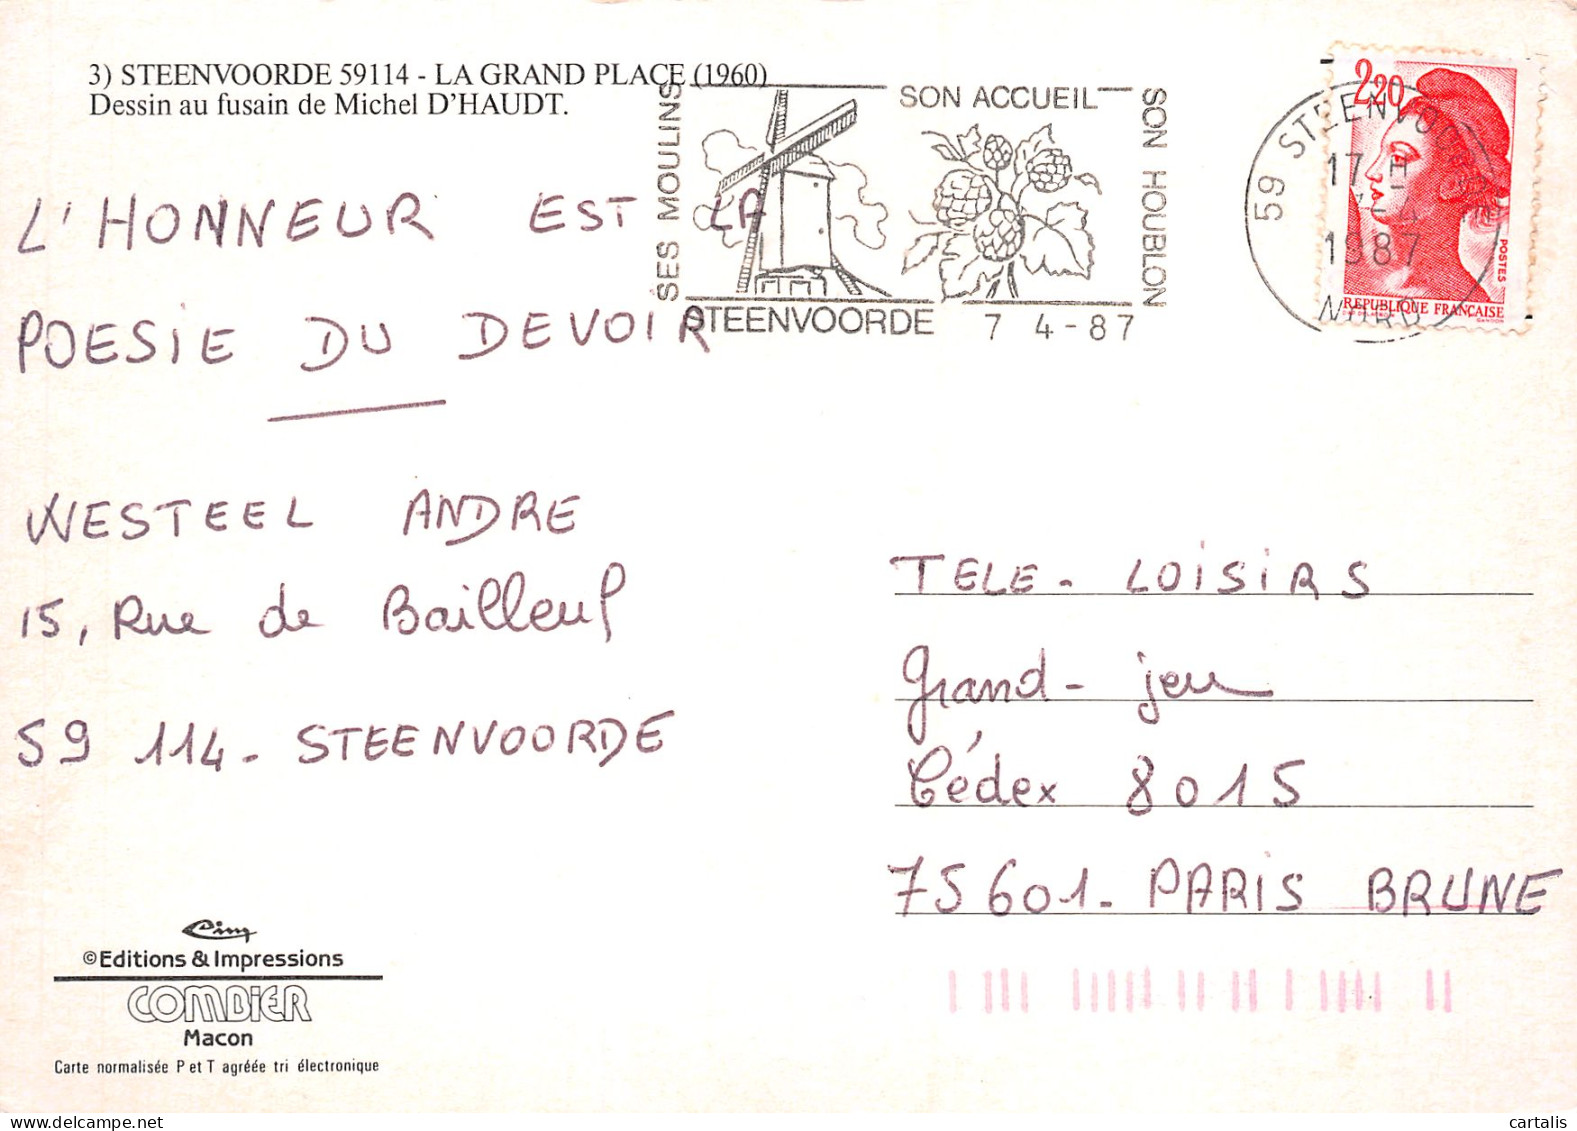 3) STEENVOORDE 59114 - LA GRAND PLACE (1960)
Dessin au fusain de Michel D'HAUDT.
SES MOULINS
SON ACCUEIL
SON HOUBLON
STEENVOORDE 7 4-87
59 STEENVO
17 H
1987
NORD
2,20
POSTES
REPUBLIQUE FRANÇAISE
L'HONNEUR EST LA
POESIE DU DEVOIR
WESTEEL ANDRE
15, Rue de Bailleul
59 114 - STEENVOORDE
TELE - LOISIRS
Grand - jeu
Cédex 8015
75601 - PARIS BRUNE
Cim
©Editions & Impressions
COMBIER
Macon
Carte normalisée P et T agréée tri électronique
cartalis
www.delcampe.net